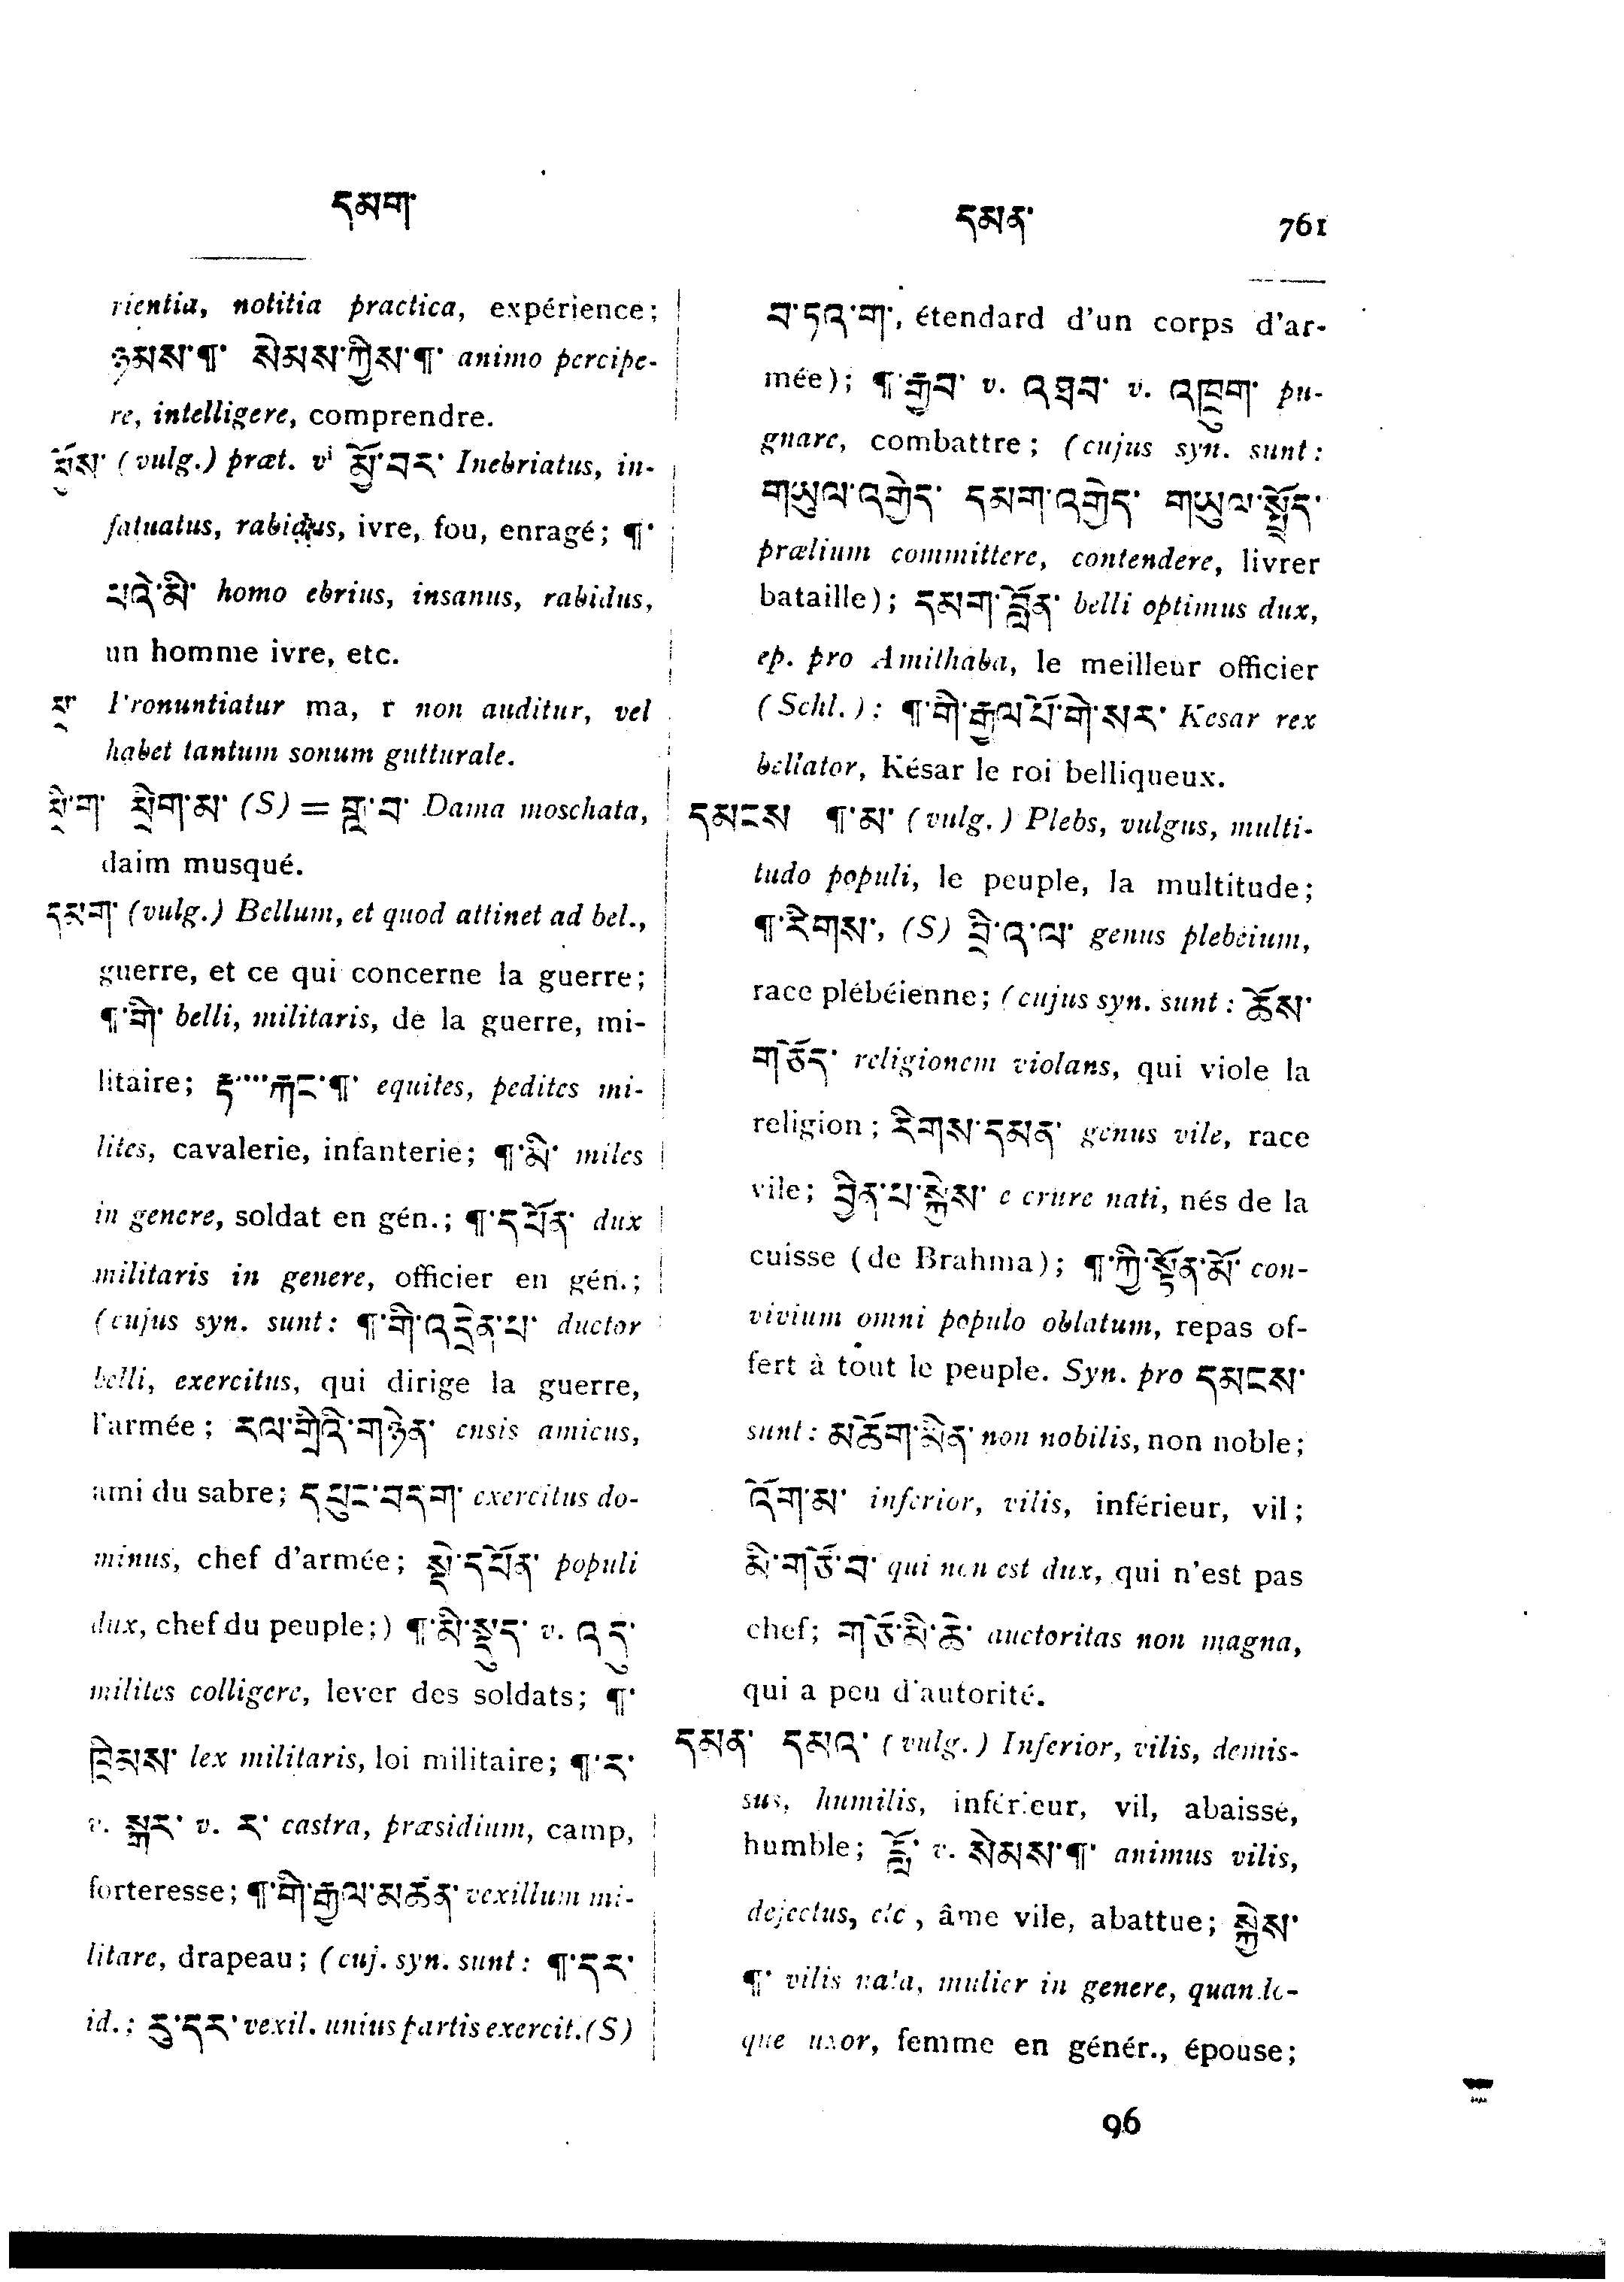 དམག་
དམན་ 761
rientia, notitia practica, expérience;
ཉམས་¶་ སེམས་ཀྱིས་¶་ animo percipe-
re, intelligere, comprendre.
མྱོས་ (vulg.) præt. vⁱ མྱོ་བར་ Inebriatus, in-
fatuatus, rabidus, ivre, fou, enragé; ¶་
པའི་མི་ homo ebrius, insanus, rabidus,
un homme ivre, etc.
མྲ་ Pronuntiatur ma, r non auditur, vel
habet tantum sonum gutturale.
མྲི་ག མྲིག་མ་ (S) = གླ་བ་ Dama moschata,
daim musqué.
དམག་ (vulg.) Bellum, et quod attinet ad bel.,
guerre, et ce qui concerne la guerre;
¶་གི་ belli, militaris, de la guerre, mi-
litaire; རྟ་་་་རྐང་¶་ equites, pedites mi-
lites, cavalerie, infanterie; ¶་མི་ miles
in genere, soldat en gén.; ¶་དཔོན་ dux
militaris in genere, officier en gén.;
(cujus syn. sunt: ¶་གི་འདྲེན་པ་ ductor
belli, exercitus, qui dirige la guerre,
l'armée; རལ་གྲིའི་གཉེན་ ensis amicus,
ami du sabre; དཔུང་བདག་ exercitus do-
minus, chef d'armée; སྡེ་དཔོན་ populi
dux, chef du peuple;) ¶་མི་སྡུད་ v. འདུ་
milites colligere, lever des soldats; ¶་
ཁྲིམས་ lex militaris, loi militaire; ¶་ར་
v. སྒར་ v. ར་ castra, præsidium, camp,
forteresse; ¶་གི་རྒྱལ་མཚན་ vexillum mi-
litare, drapeau; (cuj. syn. sunt: ¶་དར་
id.; རུ་དར་ vexil. unius partis exercit. (S)
བ་དའ་ག་, étendard d'un corps d'ar-
mée); ¶་རྒྱབ་ v. འཐབ་ v. འཁྲུག་ pu-
gnare, combattre; (cujus syn. sunt:
གཡུལ་འགྱེད་ དམག་འགྱེད་ གཡུལ་སྤྲོད་
prælium committere, contendere, livrer
bataille); དམག་བློན་ belli optimus dux,
ep. pro Amithaba, le meilleur officier
(Schl.): ¶་གི་རྒྱལ་པོ་གེ་སར་ Kesar rex
bellator, Késar le roi belliqueux.
དམངས ¶་མ་ (vulg.) Plebs, vulgus, multi-
tudo populi, le peuple, la multitude;
¶་རིགས་, (S) བྲི་འ་ལ་ genus plebeium,
race plébéienne; (cujus syn. sunt: ཆོས་
གཅོད་ religionem violans, qui viole la
religion; རིགས་དམན་ genus vile, race
vile; བྱིན་པ་སྐྱེས་ e crure nati, nés de la
cuisse (de Brahma); ¶་ཀྱི་སྟོན་མོ་ con-
vivium omni populo oblatum, repas of-
fert à tout le peuple. Syn. pro དམངས་
sunt: མཆོག་མིན་ non nobilis, non noble;
འོག་མ་ inferior, vilis, inférieur, vil;
མི་གཙོ་བ་ qui non est dux, qui n'est pas
chef; གཙོ་མི་ཆེ་ auctoritas non magna,
qui a peu d'autorité.
དམན་ དམའ་ (vulg.) Inferior, vilis, demis-
sus, humilis, inférieur, vil, abaissé,
humble; བློ་ v. སེམས་¶་ animus vilis,
dejectus, etc, âme vile, abattue; སྐྱེས་
¶་ vilis nata, mulier in genere, quando-
que uxor, femme en génér., épouse;
96